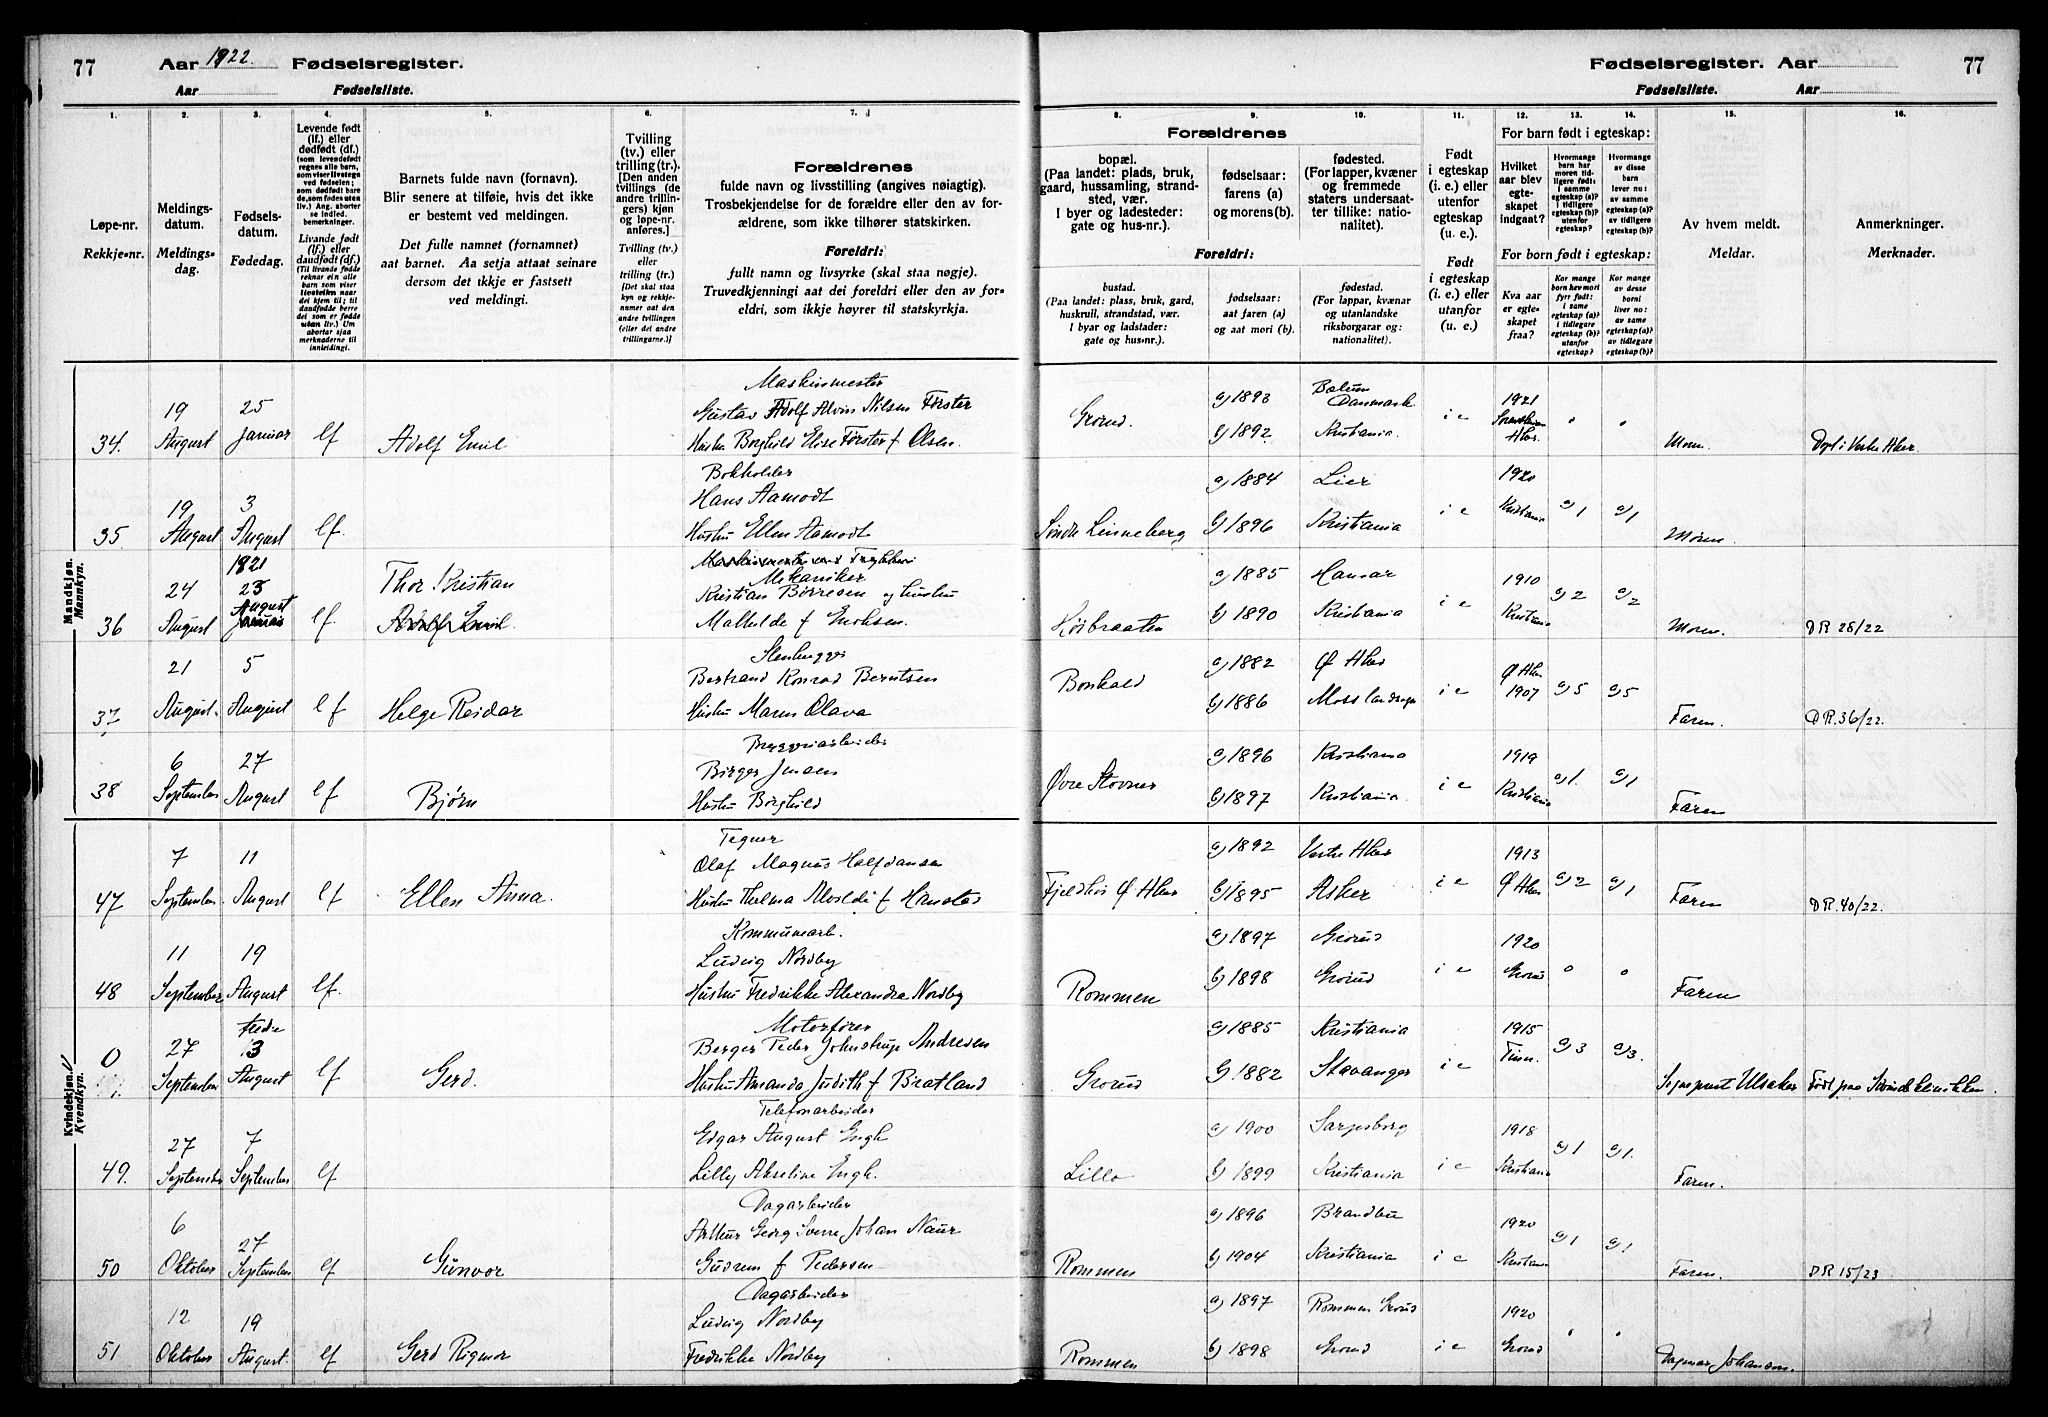 77
Aar 1922. Fødselsregister.
Aar Fødselsliste.
1. 2. 3. 4. 5. 6. 7.
Løpe-nr.
Rekkje-nr.
Meldings-
datum.
Meldings-
dag.
Fødsels-
datum.
Fødedag.
Levende født
(lf.) eller
dødfødt (df.)
Livande fødd
(lf.) eller
daudfødt (df.)
Barnets fulde navn (fornavn).
Blir senere at tilføie, hvis det ikke
er bestemt ved meldingen.
Det fulle namnet (fornamnet)
aat barnet. Aa setja attaat seinare
dersom det ikkje er fastsett
ved meldingi.
Tvilling
(tv.) eller
trilling (tr.).
[Den anden
tvillings (de
andre trillin-
gers) kjøn
og løpe-nr.
anføres.]
Tvilling (tv.)
eller
trilling (tr.)
Forældrenes
fulde navn og livsstilling (angives nøiagtig).
Trosbekjendelse for de forældre eller den av for-
ældrene, som ikke tilhører statskirken.
Foreldri:
fullt namn og livsyrke (skal staa nøgje).
Truvedkjenningi aat dei foreldri eller den av for-
eldri, som ikkje høyrer til statskyrkja.
Mandkjøn.
Mannkyn.
34. 19 August 25 Januar lf Adolf Emil
Maskinmester
Gustav Adolf Alvin Nilsen Førster
Hustru Borghild Elise Førster f Olsen.
35. 19 August 3 August lf.
Bokholder
Hans Aamodt
Hustru Ellen Aamodt
36 24 August 1921 23 August Januar lf. Thor Kristian
Adolf Emil.
Mekaniker
Kristian Børresen og hustru
Mathilde f Erichsen.
37 21 August. 5 August lf Helge Reidar
Stenhugger
Bertrand Konrad Berntsen
Hustru Maren Olava
38 6 September 27 August lf Bjørn
Bryggeriarbeider
Birger Jensen
Hustru Borghild
Kvindekjøn.
Kvendkyn.
47 7 September 11 August lf Ellen Anna.
Tegner
Olaf Magnus Halfdansen
48 11 September 19 August lf.
Kommunearb.
Ludvig Nordby
Hustru Fredrikke Alexandra Nordby
0 27 September 3 August lf Gerd.
Motorfører
Berger Peder Johnstrup Andresen
Hustru Amanda Judith f Bratland
49. 27 September 7 September lf
Telefonarbeider
Edgar August Engh
Lilly Akseline Engh.
50 6 Oktober 27 September lf Gunvor
Dagarbeider
Arthur Georg Sverre Johan Naur
Gudrun f Pedersen
51 12 Oktober 19 August. lf Gerd Rigmor
Dagarbeider
Ludvig Nordby
Fredrikke Nordby
Fødselsregister. Aar 77
Fødselsliste. Aar
8. 9. 10. 11. 12. 13. 14. 15. 16.
Forældrenes
bopæl.
(Paa landet: plads, bruk,
gaard, hussamling, strand-
sted, vær.
I byer og ladesteder:
gate og hus-nr.).
fødselsaar:
farens (a)
og morens (b).
fødested.
(For lapper, kvæner
og fremmede
staters undersaat-
ter tillike: natio-
nalitet).
Foreldri:
bustad.
(Paa landet: plass, bruk, gard,
huskrull, strandstad, vær.
I byar og ladstader:
gate og hus-nr.).
fødselsaar:
aat faren (a)
og aat mori (b).
fødestad.
(For lappar, kvænar
og utanlandske
riksborgarar og:
nationalitet).
Født
i egteskap
(i. e.) eller
utenfor
egteskap
(u. e.).
Født
i egteskap
(i. e.) eller
utanfor
(u. e.).
For barn født i egteskap:
Hvilket
aar blev
egte-
skapet
indgaat?
For born født i egteskap:
Kva aar
er egte-
skapet
fraa?
Av hvem meldt.
Meldar.
Anmerkninger.
Merknader.
Grorud. a) 1893 Danmark i e 1921 Aker. 0 0
b) 1892 Kristiania. Moren. Døpt i Vestre Aker.
a) 1884 Lier 1920
Søndre Linneberg b) 1896 Kristiania i e Kristiania a) 1 a) 1 Moren.
a) 1885 Hamar 1910
Høibraaten b) 1890 Kristiania i e Kristiania a) 2 a) 2 Moren. DR 28/22
a) 1882 Ø Aker Ø Aker
Bonkald b) 1886 i e 1907 a) 5 a) 5 Faren. DR. 36/22.
a) 1896 Kristiania 1919
Øvre Stovner b) 1897 Kristiania. i e Kristiania a) 1. a) 1 Faren
a) 1892 Vestre Aker 1913
Fjeldhus Ø Aker b) 1895 Asker i e Ø Aker a) 2 a) 1 Faren DR. 40/22.
a) 1897 Grorud 1920
Rommen b) 1898 Grorud i e Grorud 0 0 Faren
a) 1885 Kristiania 1915
Grorud b) 1882 Stavanger i e a) 3 a) 3. Sogneprest Ulsaker Født paa Kvindeklinikken.
a) 1900 Sarpsborg 1918
Lillo b) 1899 Kristiania i e Kristiania a) 1 a) 1. Faren.
a) 1896 Brandbu 1920
Rommen b) 1904 Kristiania i e Kristiania a) 1 a) 1 Faren. DR 15/23
a) 1897 Rommen Grorud 1920
Rommen b) 1898 Grorud i e Grorud Dagmar Johansen.